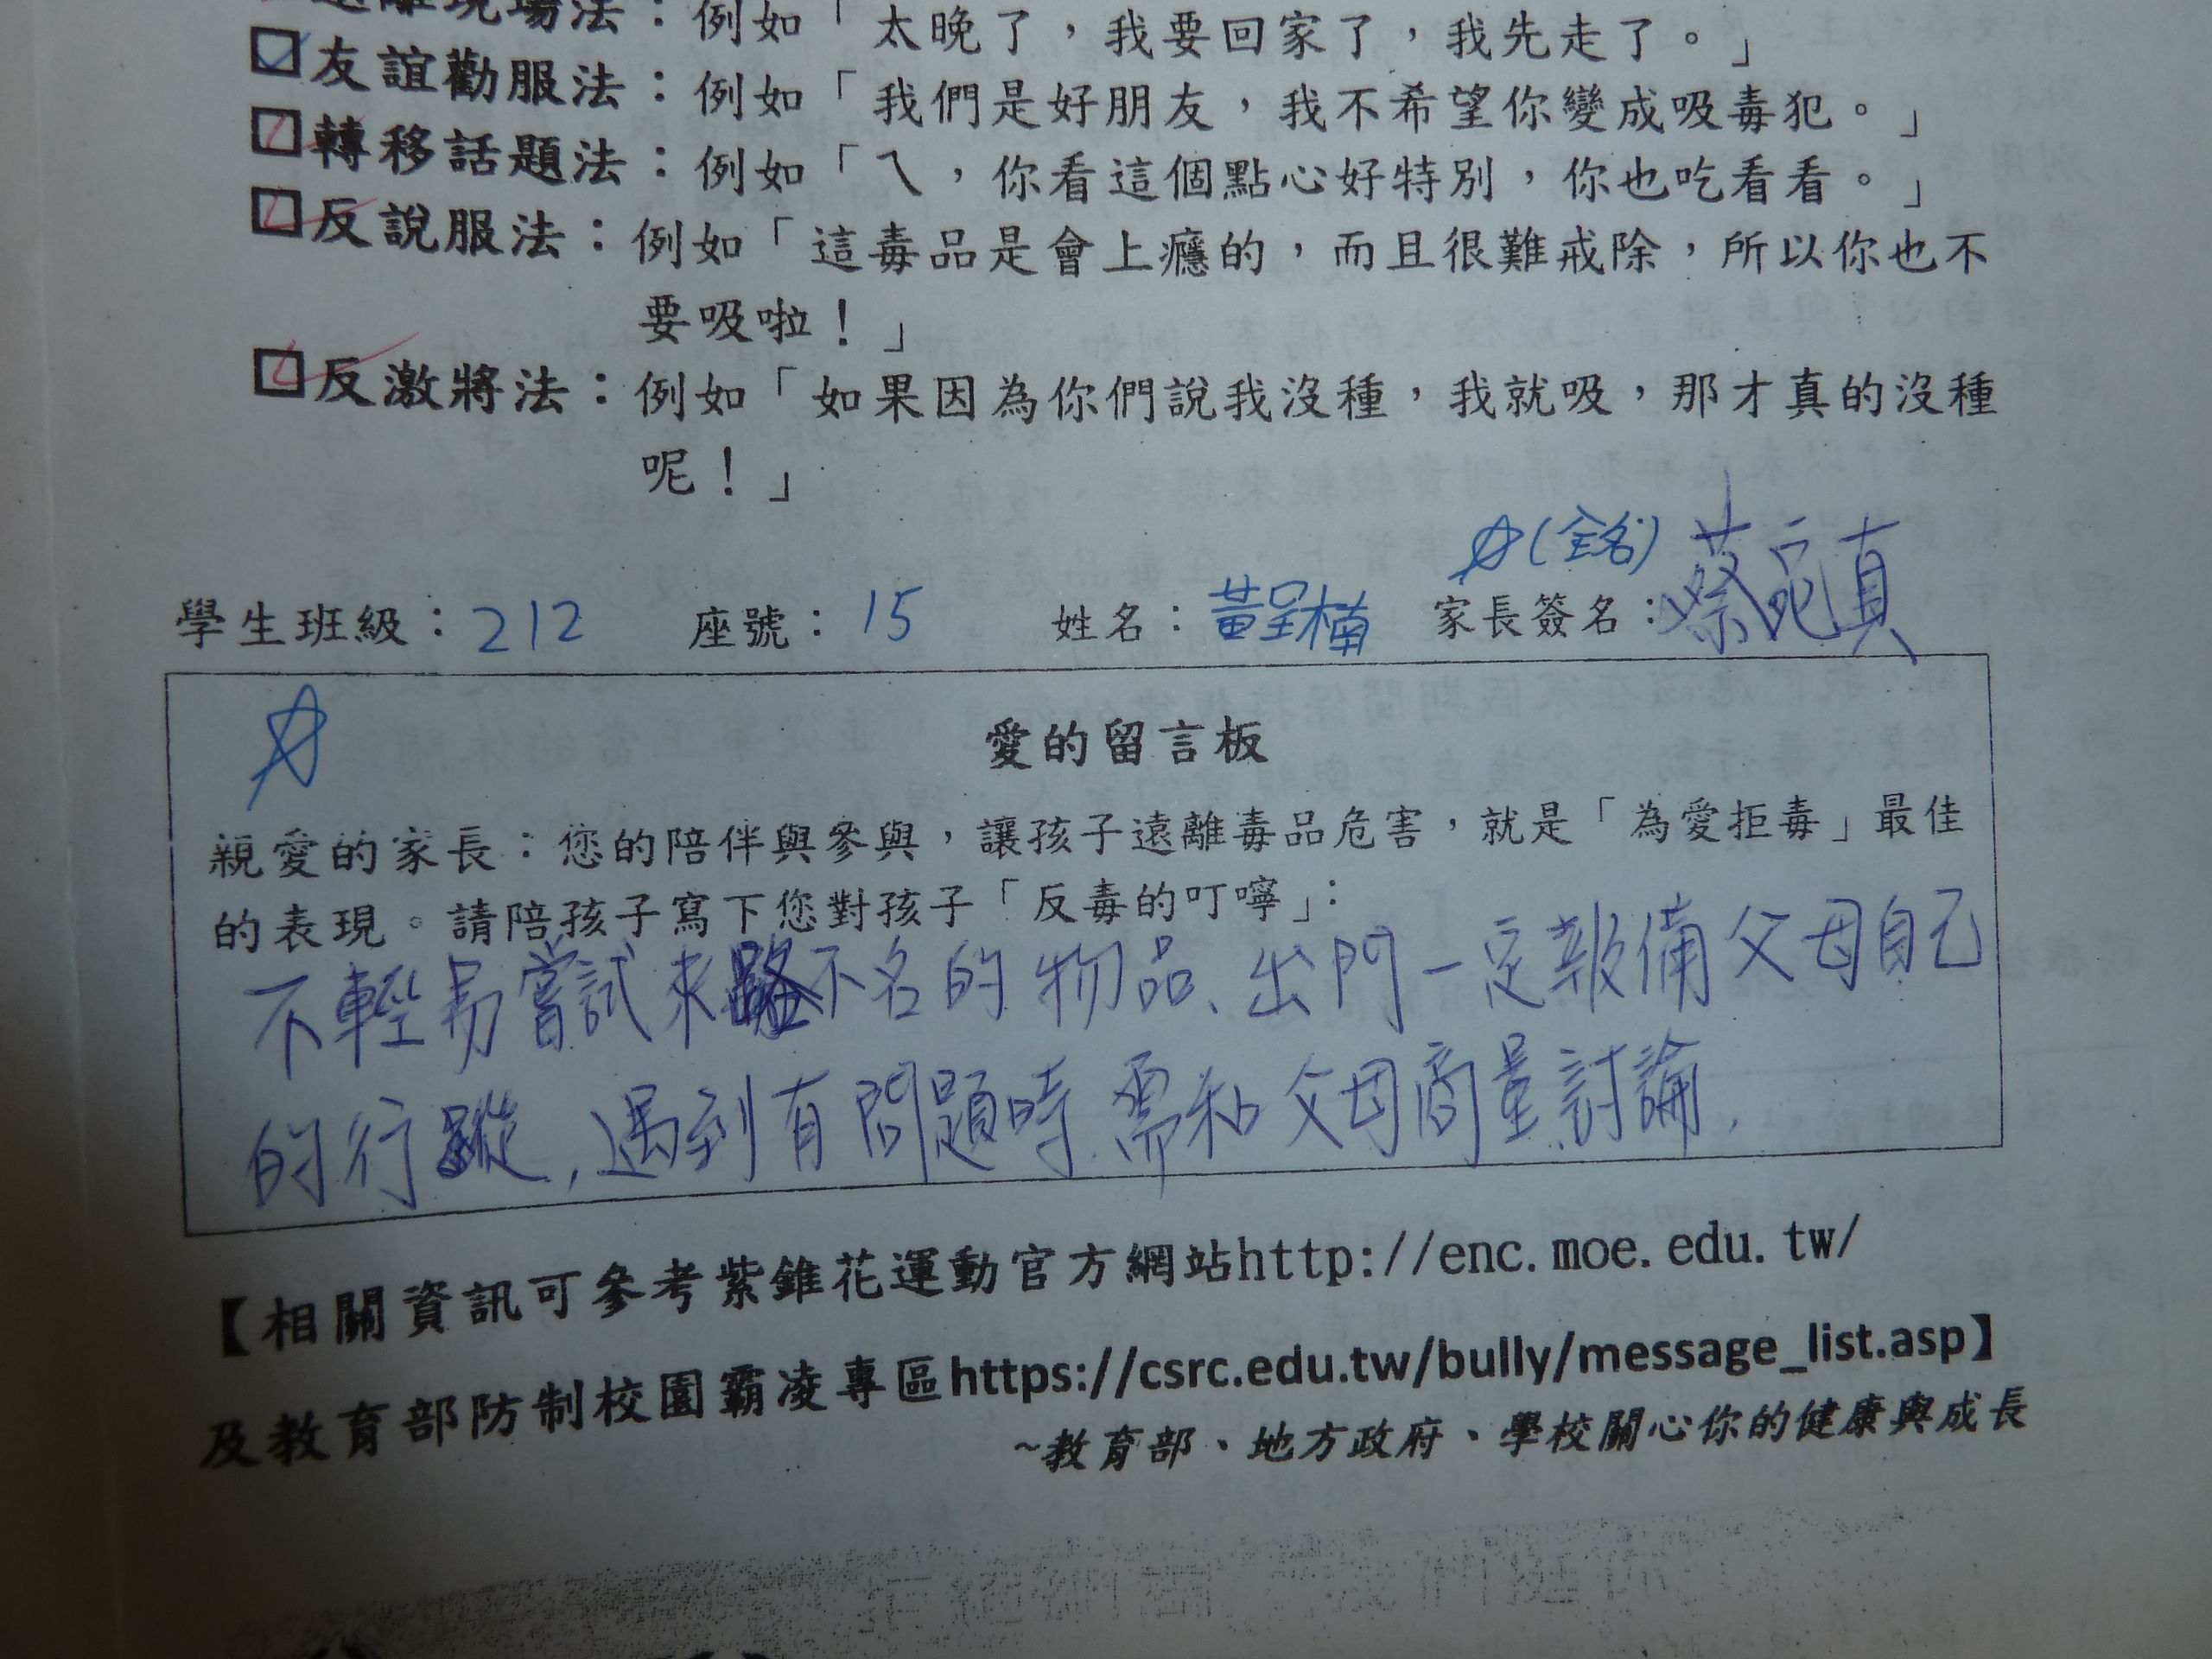 遠離現場法：例如「太晚了，我要回家了，我先走了。」
友誼勸服法：例如「我們是好朋友，我不希望你變成吸毒犯。」
轉移話題法：例如「ㄟ，你看這個點心好特別，你也吃看看。」
反說服法：例如「這毒品是會上癮的，而且很難戒除，所以你也不
要吸啦！」
反激將法：例如「如果因為你們說我沒種，我就吸，那才真的沒種
呢！」
(全名)
學生班級：212 座號：15 姓名：黃呈楠 家長簽名：蔡宛真
愛的留言板
親愛的家長：您的陪伴與參與，讓孩子遠離毒品危害，就是「為愛拒毒」最佳
的表現。請陪孩子寫下您對孩子「反毒的叮嚀」：
不輕易嘗試來路不名的物品、出門一定報備父母自己
的行蹤，遇到有問題時、需和父母商量討論.
【相關資訊可參考紫錐花運動官方網站http://enc.moe.edu.tw/
及教育部防制校園霸凌專區https://csrc.edu.tw/bully/message_list.asp】
~教育部、地方政府、學校關心你的健康與成長